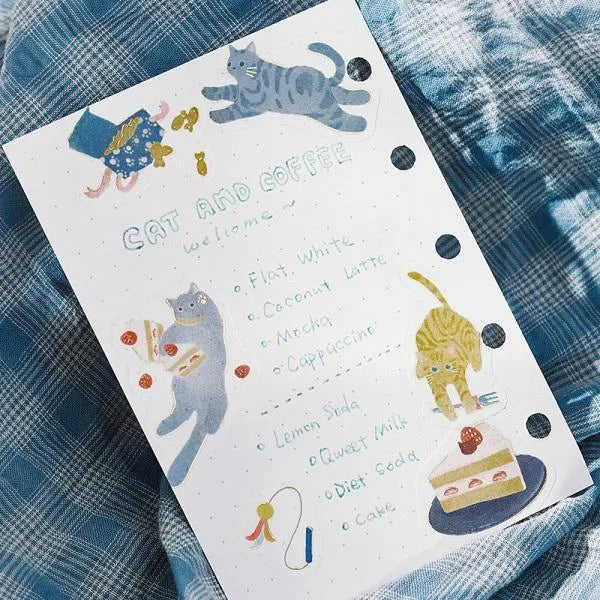 CAT AND COFFEE
welcome ~
o Flat White
o Coconut Latte
o Mocha
o Cappuccino
----------------
o Lemon Soda
o Qweet Milk
o Diet soda
o Cake